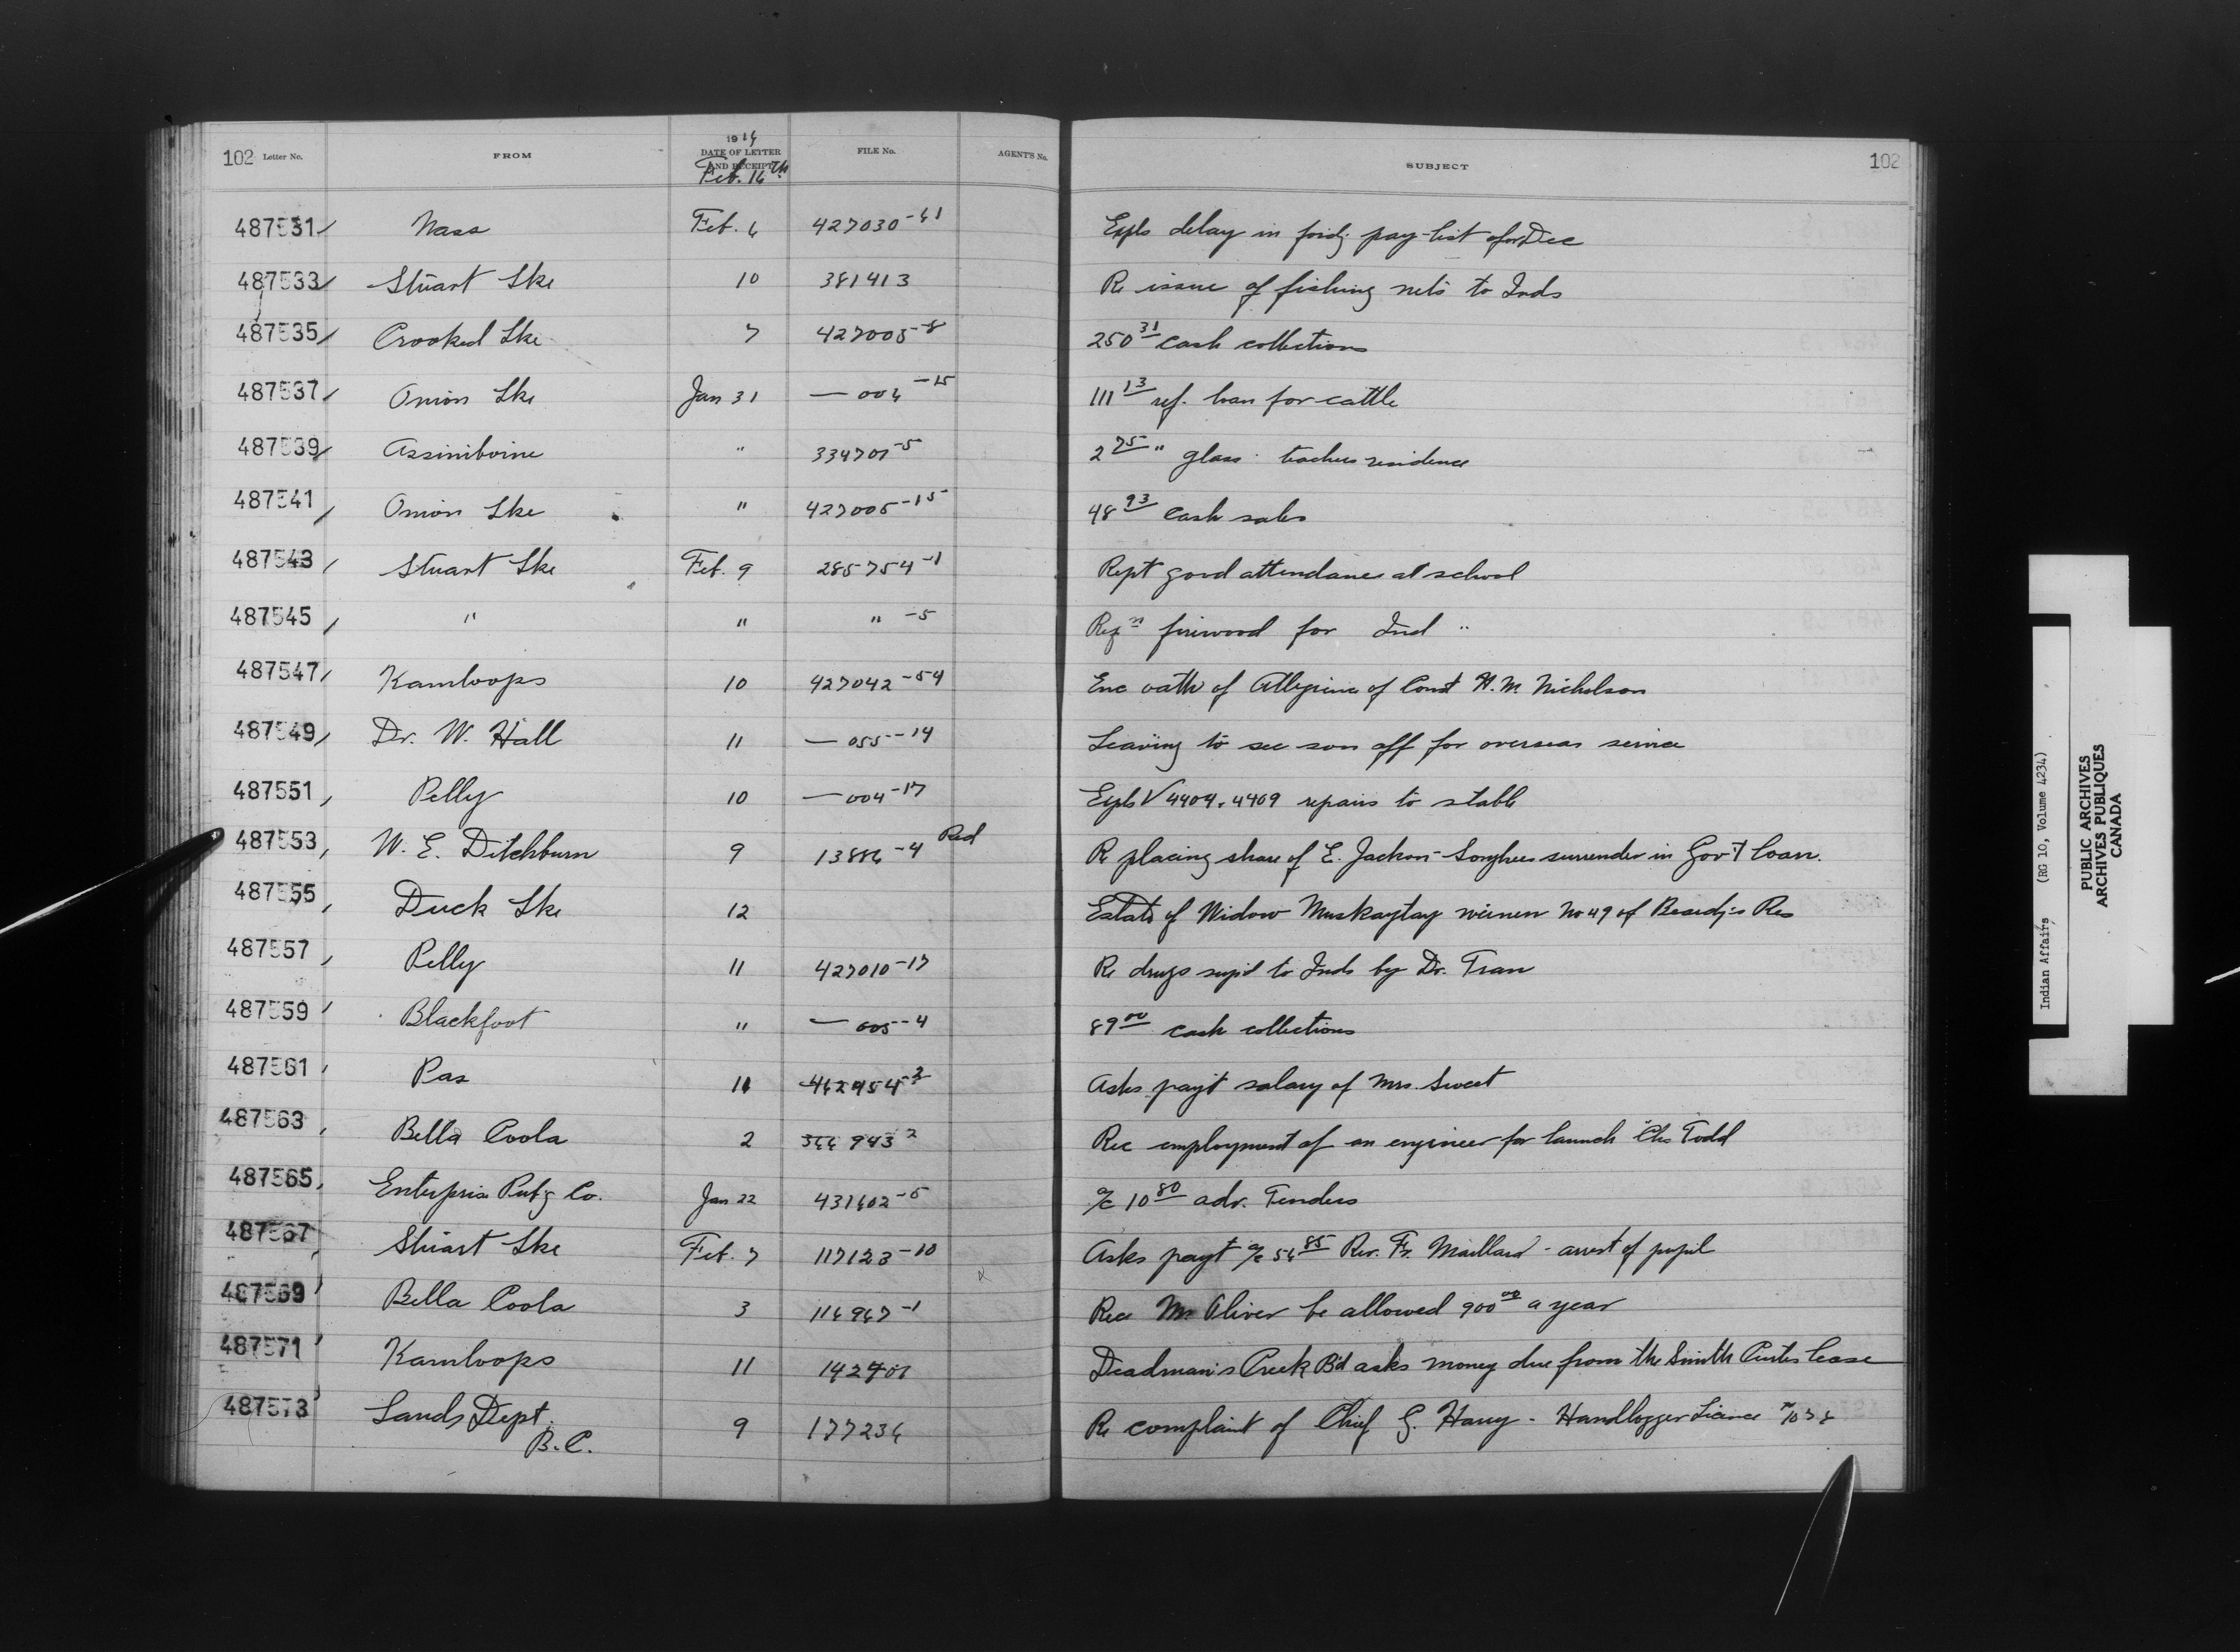 102 Letter No. FROM 1916 DATE OF LETTER AND RECEIPT Feb. 16th FILE No. AGENT'S No. SUBJECT 102
487531 Nass Feb. 6 427030-61 Expls delay in fordg pay-list for Dec
487533 Stuart Lke 10 381413 Re issue of fishing nets to Inds
487535 Crooked Lke 7 427005-8 250 31 cash collections
487537 Onion Lke Jan 31 — 004-15 111 13 ref. loan for cattle
487539 Assiniboine " 334701-5 2 75 " glass teachers residence
487541 Onion Lke " 427005-15 48 93 cash sales
487543 Stuart Lke Feb. 9 285754-1 Rept good attendance at school
487545 " " " -5 Reqn firewood for Ind "
487547 Kamloops 10 427042-54 Enc oath of Allegiance of Const H. M. Nicholson
487549 Dr. W. Hall 11 — 055-14 Leaving to see son off for overseas service
487551 Pelly 10 — 004-17 Expls V 4404 + 4409 repairs to stable
487553 W. E. Ditchburn 9 13886-4 Red Re placing share of E. Jackson - Songhees surrender in Gov't loan.
487555 Duck Lke 12 Estate of Widow Muskaytay No 49 of Beardy's Res
487557 Pelly 11 427010-17 Re drugs sup'd to Inds by Dr. Tran
487559 Blackfoot " — 005-4 89 00 cash collections
487561 Pas 11 Asks pay't salary of Mrs. Sweet
487563 Bella Coola 2 366943 2 Rec employment of an engineer for launch Chs Todd
487565 Enterprise Pub'g Co. Jan 22 431602-5 a/c 10 80 adv. Tenders
487567 Stuart Lke Feb. 7 117123-10 Asks payt a/c 56 85 Rev. Fr. Maillard - arrest of pupil
487569 Bella Coola 3 116967-1 Rec Mr Oliver be allowed 900 00 a year
487571 Kamloops 11 142401 Deadman's Creek B'd asks money due from the Smith Curtis lease
487573 Lands Dept. 9 177236 Re complaint of Chief G. Harry - Handlogger Licence
B.C.
Indian Affairs (RG 10, Volume 4234)
PUBLIC ARCHIVES
ARCHIVES PUBLIQUES
CANADA